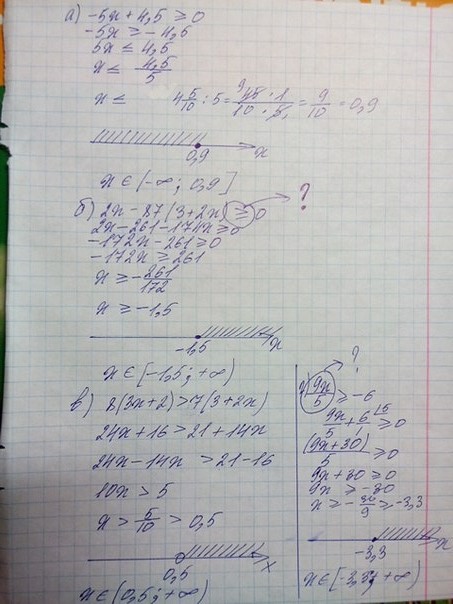 а) -5x + 4,5 ≥ 0
-5x ≥ -4,5
5x ≤ 4,5
x ≤ 4,5/5
x ≤ 4 5/10 : 5 = 45·1/10·5 = 9/10 = 0,9
0,9 x
x ∈ (-∞; 0,9]
б) 2x - 87(3+2x) ≥ 0 ?
2x - 261 - 174x ≥ 0
-172x - 261 ≥ 0
-172x ≥ 261
x ≥ -261/172
x ≥ -1,5
-1,5 x
x ∈ [-1,5; +∞)
в) 8(3x+2) > 7(3+2x)
24x + 16 > 21 + 14x
24x - 14x > 21 - 16
10x > 5
x > 5/10 > 0,5
0,5 x
x ∈ (0,5; +∞)
?
9x/5 ≥ -6
9x/5 + 6/1 ≥ 0
(9x+30)/5 ≥ 0
9x + 30 ≥ 0
9x ≥ -30
x ≥ -30/9 ≥ -3,3
-3,3 x
x ∈ [-3,3; +∞)